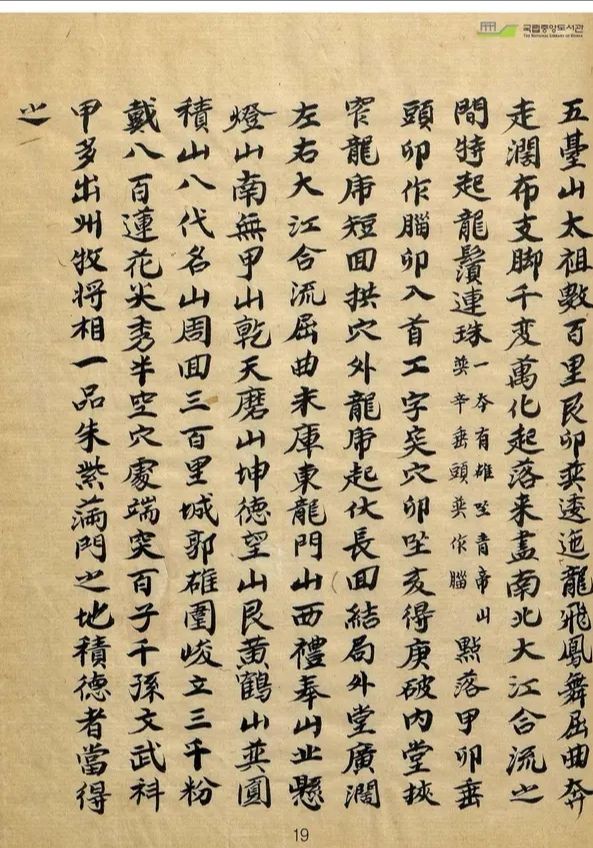 국립중앙도서관
THE NATIONAL LIBRARY OF KOREA
五臺山太祖數百里艮卯巽逶迤龍飛鳳舞屈曲奔
走濶布支脚千变萬化起落来盡南北大江合流之
間特起龍鬚連珠
一夲有雄坐青帝山
巽辛垂頭巽作腦
點落甲卯垂
頭卯作腦卯入首工字突穴卯坐亥得庚破内堂挾
窄龍虎短回拱穴外龍虎起伏長回結局外堂廣濶
左右大江合流屈曲未庫東龍門山西禮奉山北懸
燈山南無甲山乾天磨山坤德望山艮黄鶴山巽圓
積山八代名山周回三百里城郭雄圍峻立三千粉
戴八百蓮花尖秀半空穴處端突百子千孫文武科
甲多出州牧将相一品朱紫满門之地積德者當得
之
19